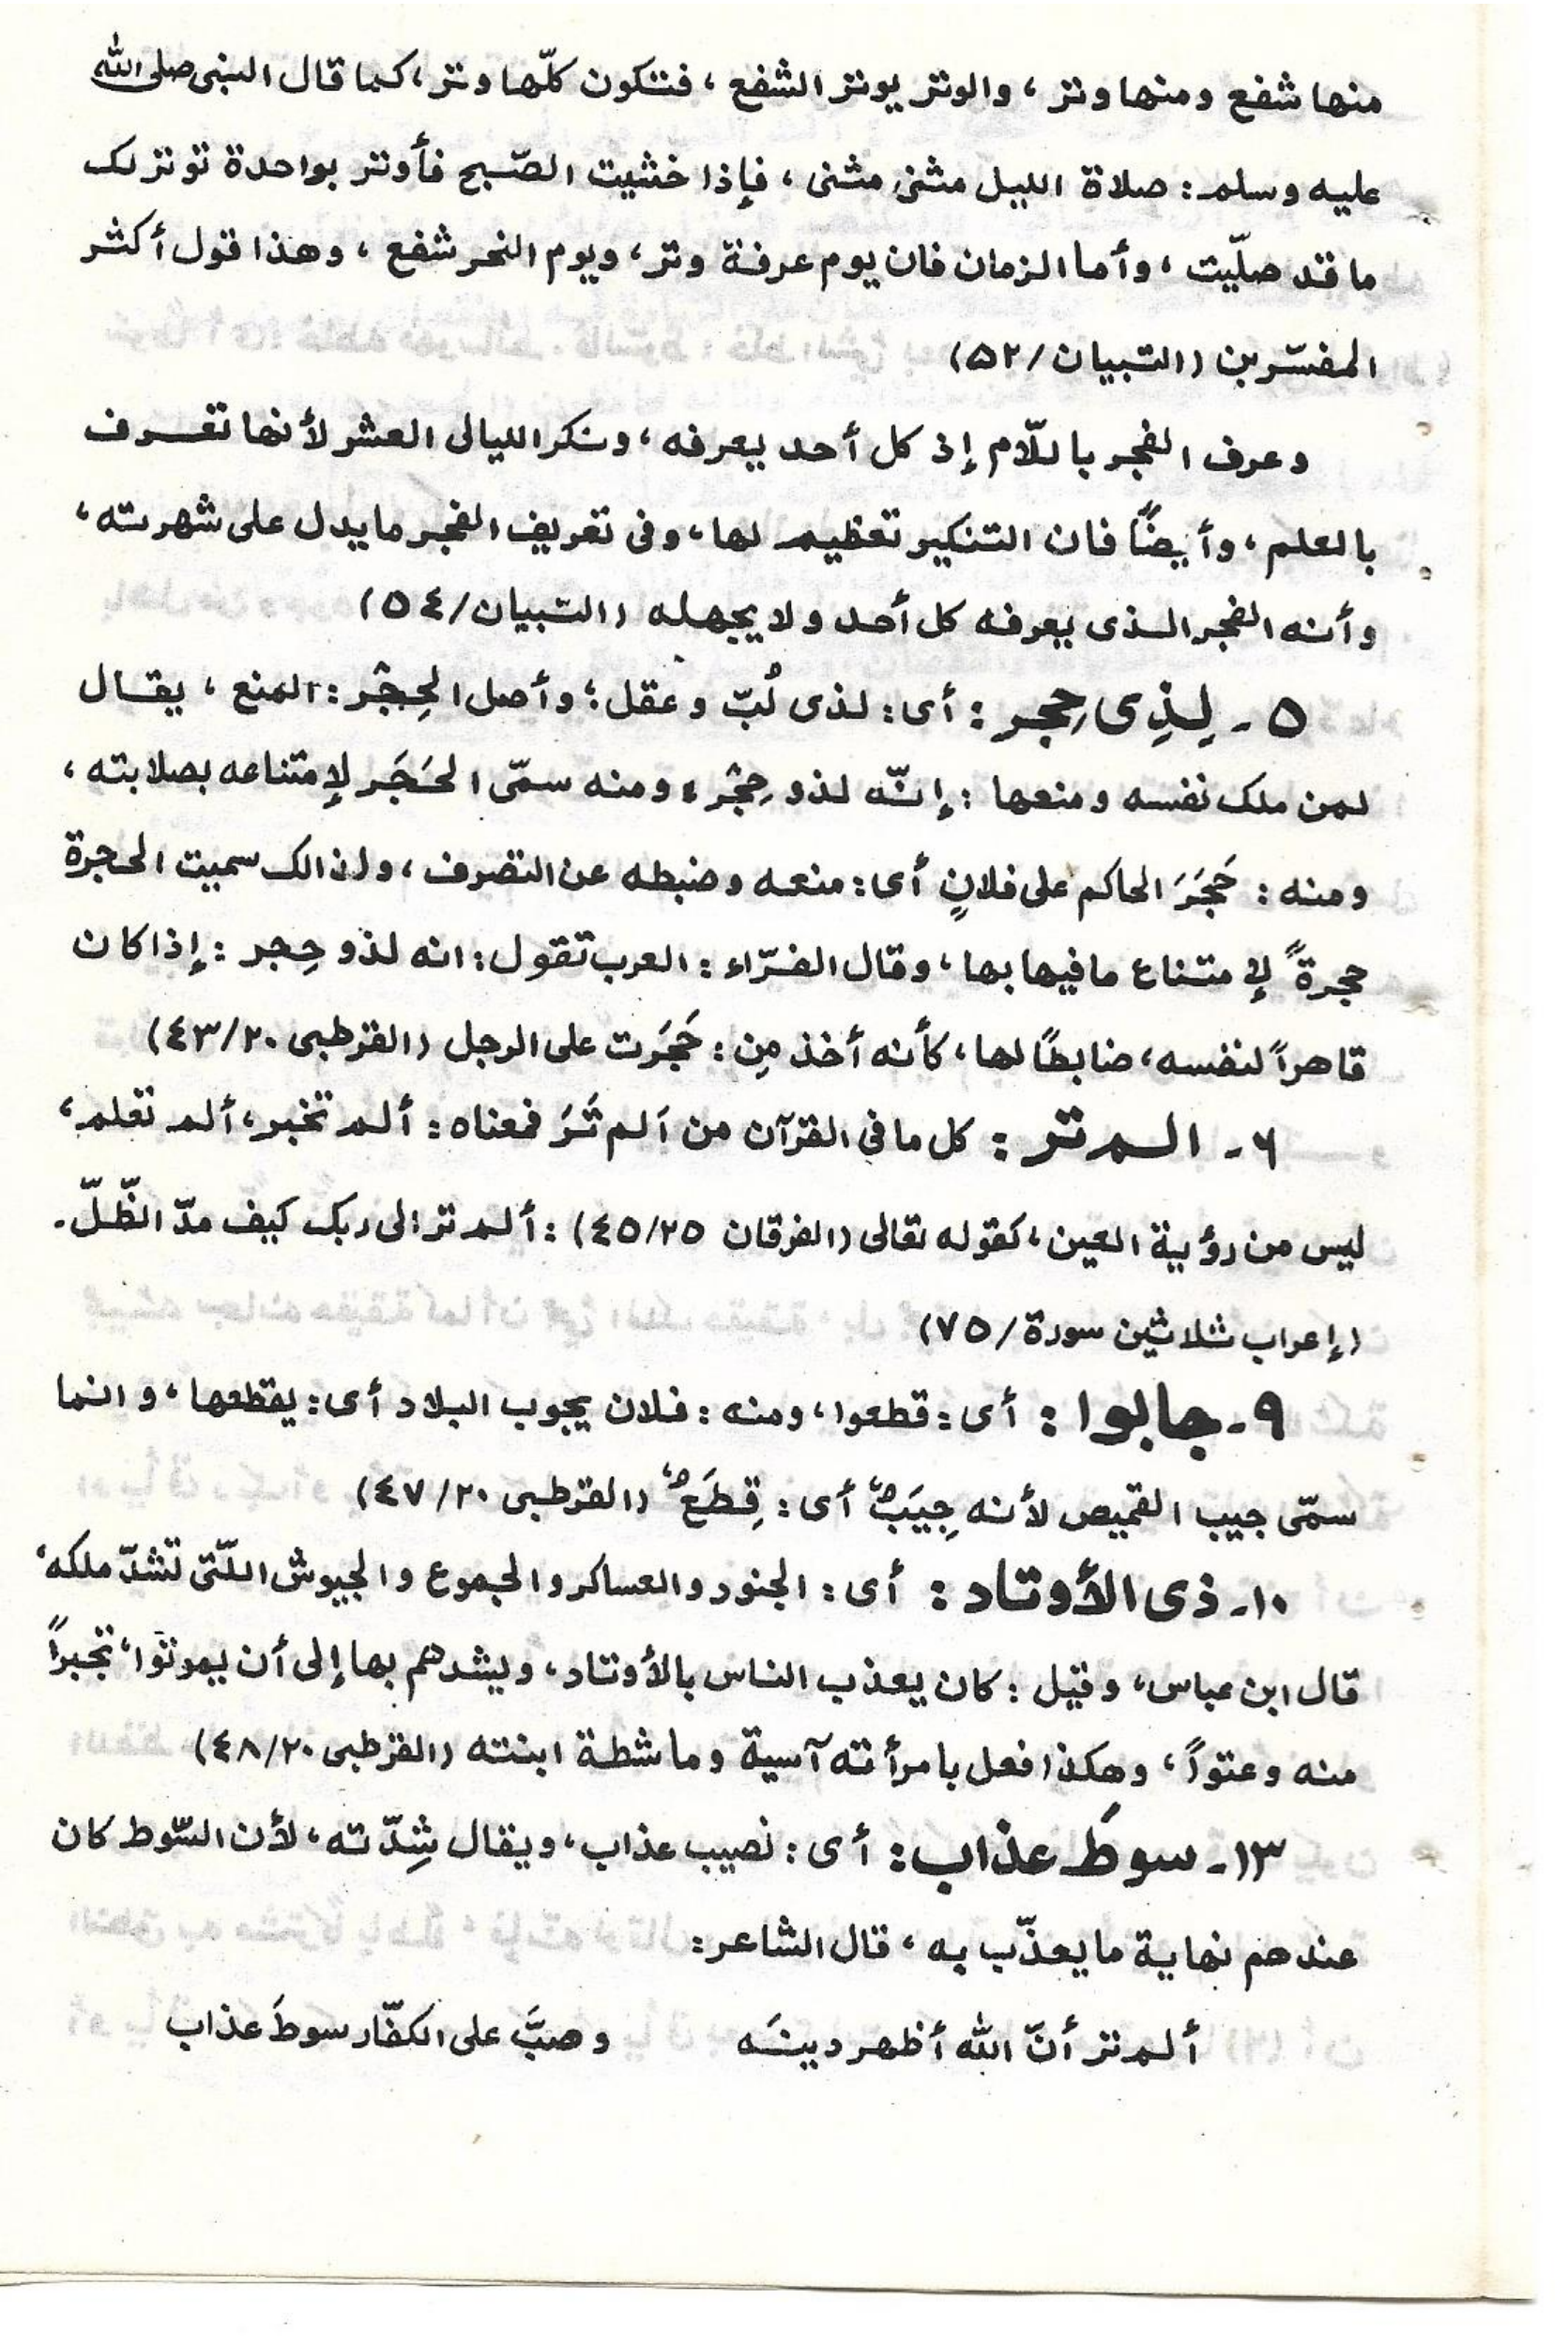 منها شفع ومنها وتر ، والوتر يوتر الشفع ، فتكون كلّها وتر ، كما قال النبى صلى الله
عليه وسلم : صلاة الليل مثنى مثنى ، فإذا خشيت الصّبح فأوتر بواحدة توتر لك
ما قد صلّيت ، وأما الزمان فان يوم عرفة وتر ، ويوم النحر شفع ، وهذا قول أكثر
المفسّرين (التبيان/٥٢)
وعرف الفجر باللّام إذ كل أحد يعرفه ، ونكر الليالى العشر لأنها تعرف
بالعلم ، وأيضًا فان التنكير تعظيم لها ، وفى تعريف الفجر ما يدل على شهرته ،
وأنه الفجر الذى يعرفه كل أحد ولا يجهله (التبيان/٥٤)
٥ ـ لِذِى حِجر : أى : لذى لُبّ وعقل ؛ وأصل الحِجْر : المنع ، يقال
لمن ملك نفسه ومنعها : إنّه لذو حِجْر ، ومنه سمّى الحَجَر لإمتناعه بصلابته ،
ومنه : حَجَرَ الحاكم على فلانٍ أى : منعه وضبطه عن التصرف ، ولذالك سميت الحجرة
حجرةً لإمتناع ما فيها بها ، وقال الفرّاء : العرب تقول : انه لذو حِجر : إذا كان
قاهراً لنفسه ، ضابطًا لها ، كأنه أخذ مِن : حَجَرت على الرجل (القرطبى ٤٣/٢٠)
٦ ـ الم تر : كل ما فى القرآن من اَلم تَرَ فمعناه : ألم تخبر ، ألم تعلم ،
ليس من رؤية العين ، كقوله تعالى (الفرقان ٤٥/٢٥) : ألم تر الى ربك كيف مدّ الظّلّ .
(إعراب ثلاثين سورة/٧٥)
٩ ـ جابوا : أى : قطعوا ، ومنه : فلان يجوب البلاد أى : يقطعها ، و انما
سمّى جيب القميص لأنه جِيَبٌ أى : قِطَعٌ (القرطبى ٤٧/٢٠)
١٠ ـ ذى الأوتاد : أى : الجنود والعساكر والجموع والجيوش اللّتى تشدّ ملكه ،
قال ابن عباس ، وقيل : كان يعذب الناس بالأوتاد ، ويشدهم بها إلى أن يموتوا ، تجبراً
منه وعتواً ، وهكذا فعل بامرأته آسية وماشطة ابنته (القرطبى ٤٨/٢٠)
١٣ ـ سوطَ عذاب : أى : نصيب عذاب ، ويقال شِدّته ، لأن السّوط كان
عندهم نهاية ما يعذّب به ، قال الشاعر :
ألم تر أنّ الله أظهر دينَه وصبَّ على الكفّار سوطَ عذاب